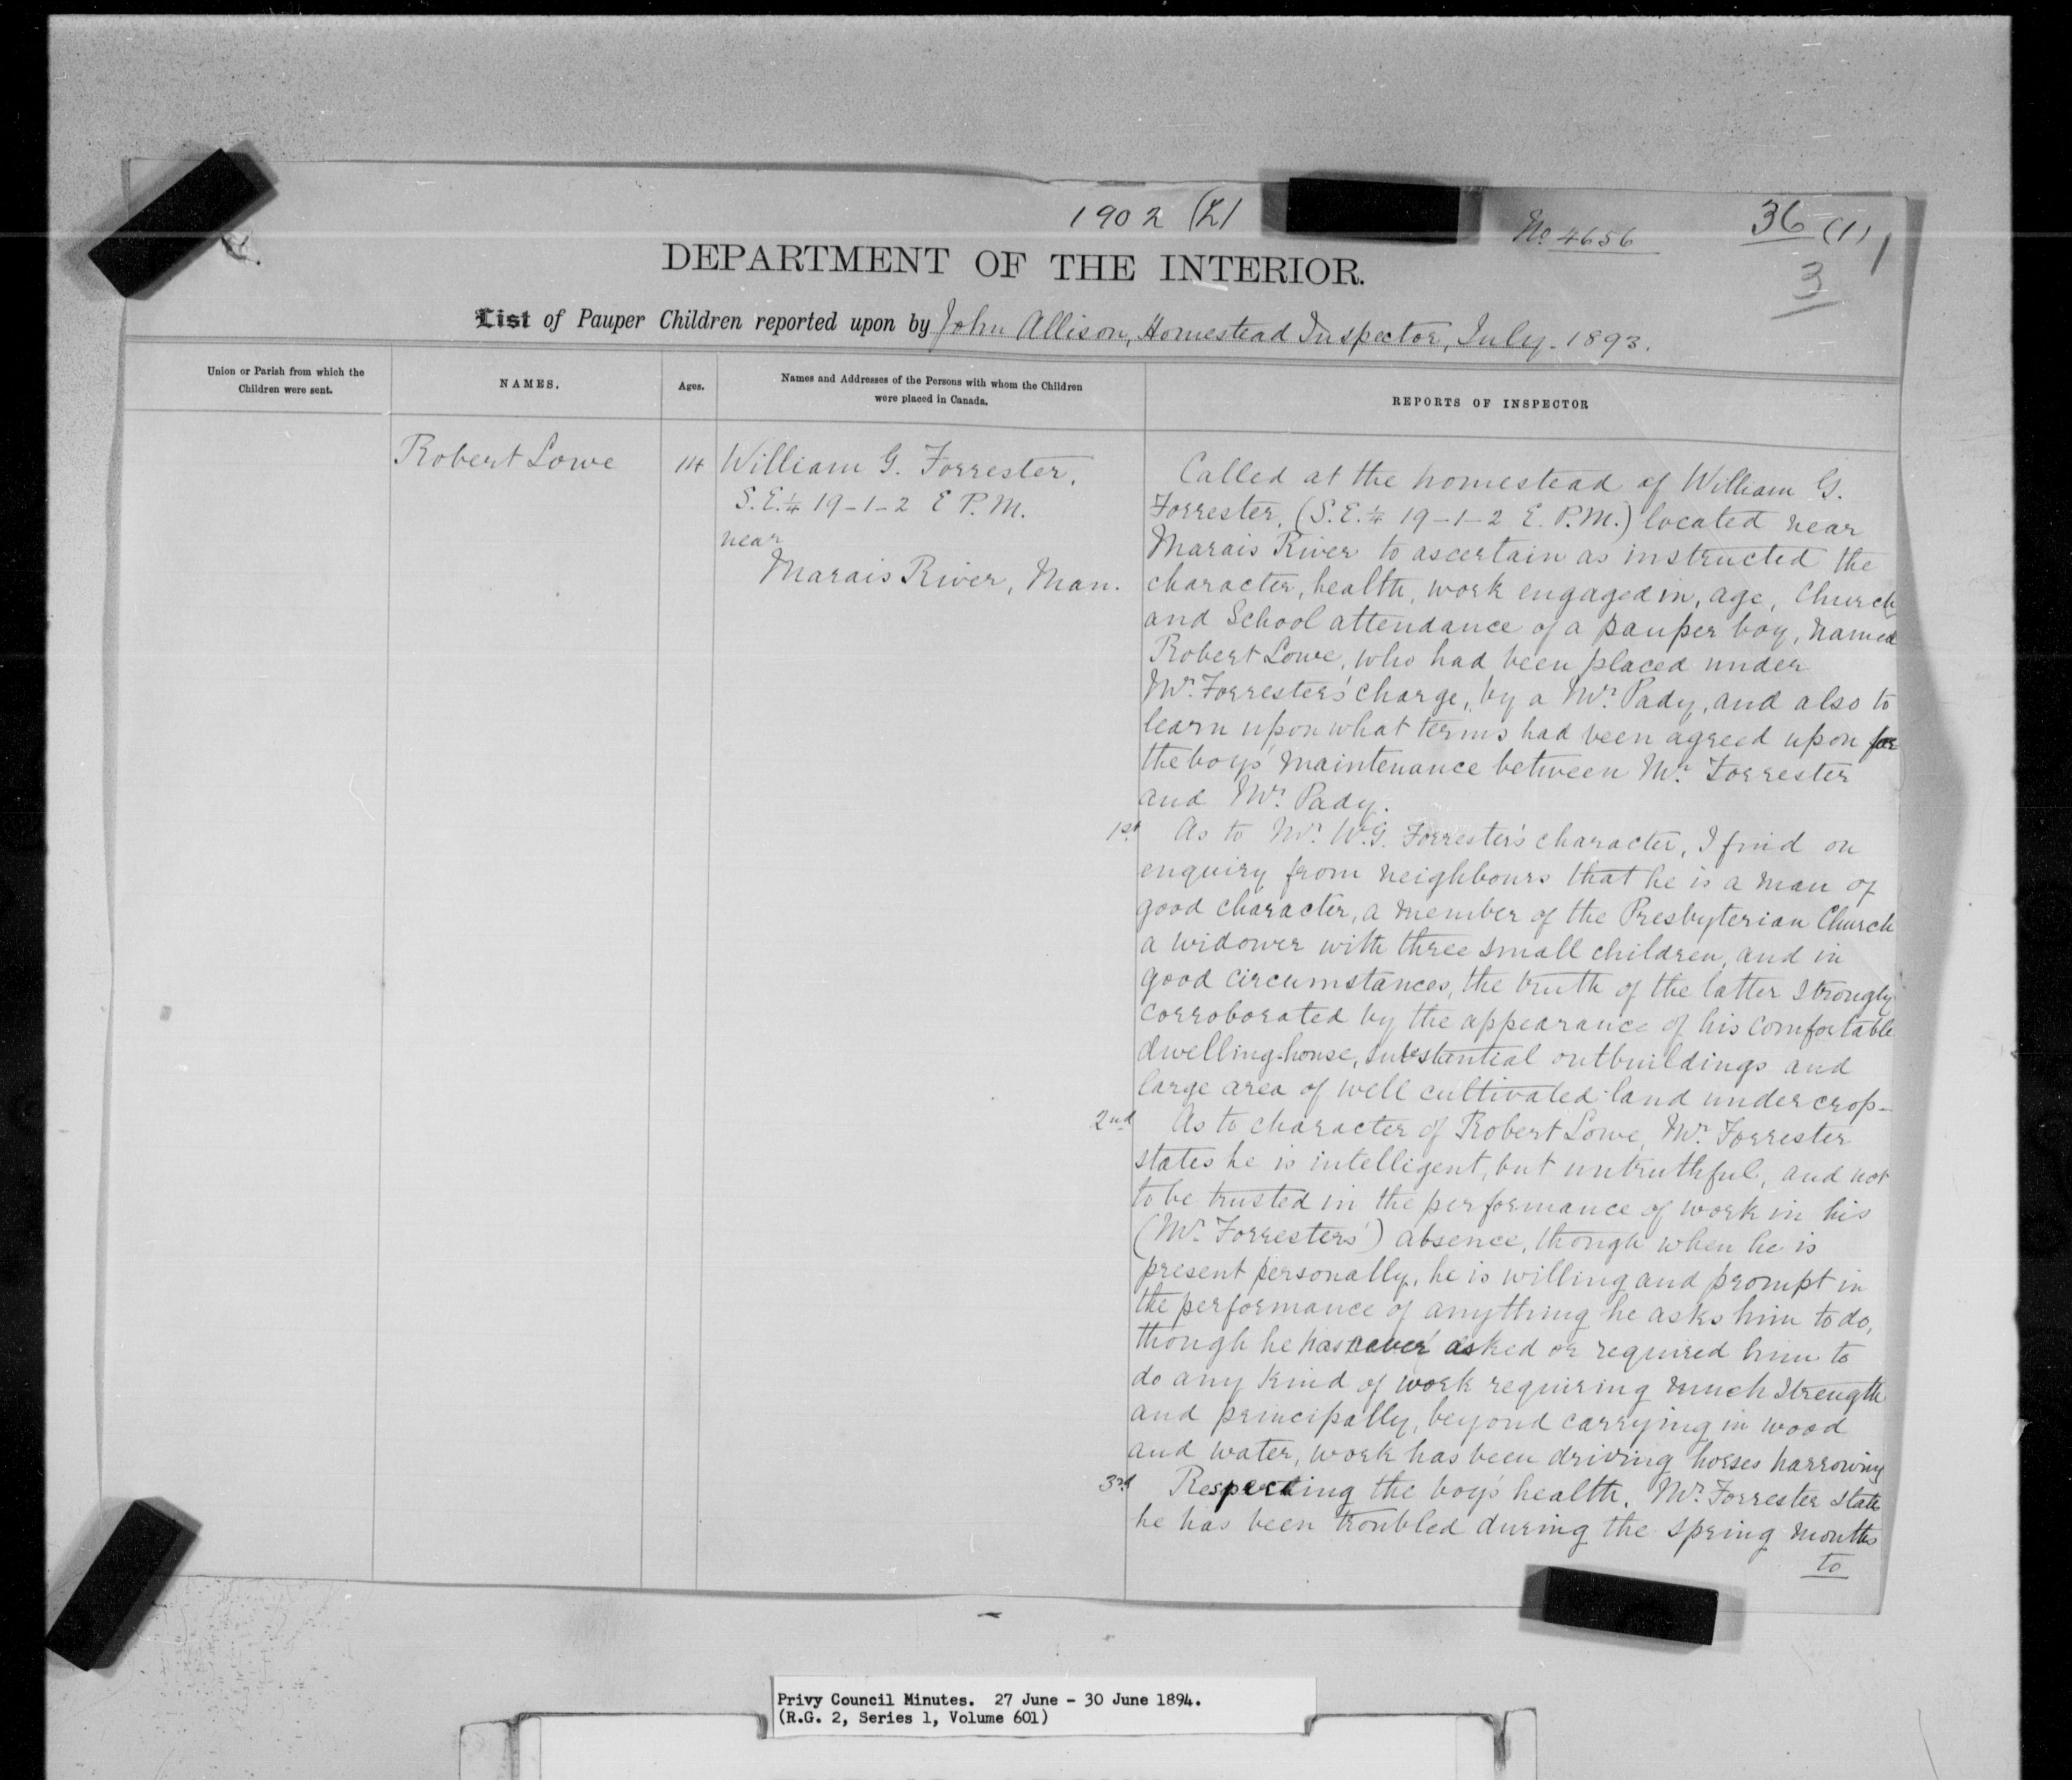 1902 (L)
No 4656
36 (1)
3
DEPARTMENT OF THE INTERIOR.
List of Pauper Children reported upon by John Allison, Homestead Inspector, July - 1893.
Union or Parish from which the
Children were sent.
NAMES.
Ages.
Names and Addresses of the Persons with whom the Children
were placed in Canada.
REPORTS OF INSPECTOR
Robert Lowe
14
William G. Forrester,
S.E. 1/4 19-1-2 E P.M.
near
Marais River, Man.
Called at the homestead of William G.
Forrester, (S.E. 1/4 19-1-2 E. P.M.) located near
Marais River to ascertain as instructed the
character, health, work engaged in, age, Church
and School attendance of a pauper boy, named
Robert Lowe, who had been placed under
Mr. Forresters' charge, by a Mr. Pady, and also to
learn upon what terms had been agreed upon for
the boys' maintenance between Mr. Forrester
and Mr. Pady.
1st. As to Mr. W.G. Forrester's character, I find on
enquiry from neighbours that he is a man of
good character, a member of the Presbyterian Church
a widower with three small children, and in
good circumstances, the truth of the latter strongly
corroborated by the appearance of his comfortable
dwelling-house, substantial outbuildings and
large area of well cultivated land under crop-
2nd As to character of Robert Lowe, Mr. Forrester
states he is intelligent, but untruthful, and not
to be trusted in the performance of work in his
(Mr. Forresters') absence, though when he is
present personally, he is willing and prompt in
the performance of anything he asks him to do,
though he has never asked or required him to
do any kind of work requiring much strength
and principally, beyond carrying in wood
and water, work has been driving horses harrowing
3rd Respecting the boy's health, Mr. Forrester states
he has been troubled during the spring months
to
Privy Council Minutes. 27 June - 30 June 1894.
(R.G. 2, Series 1, Volume 601)